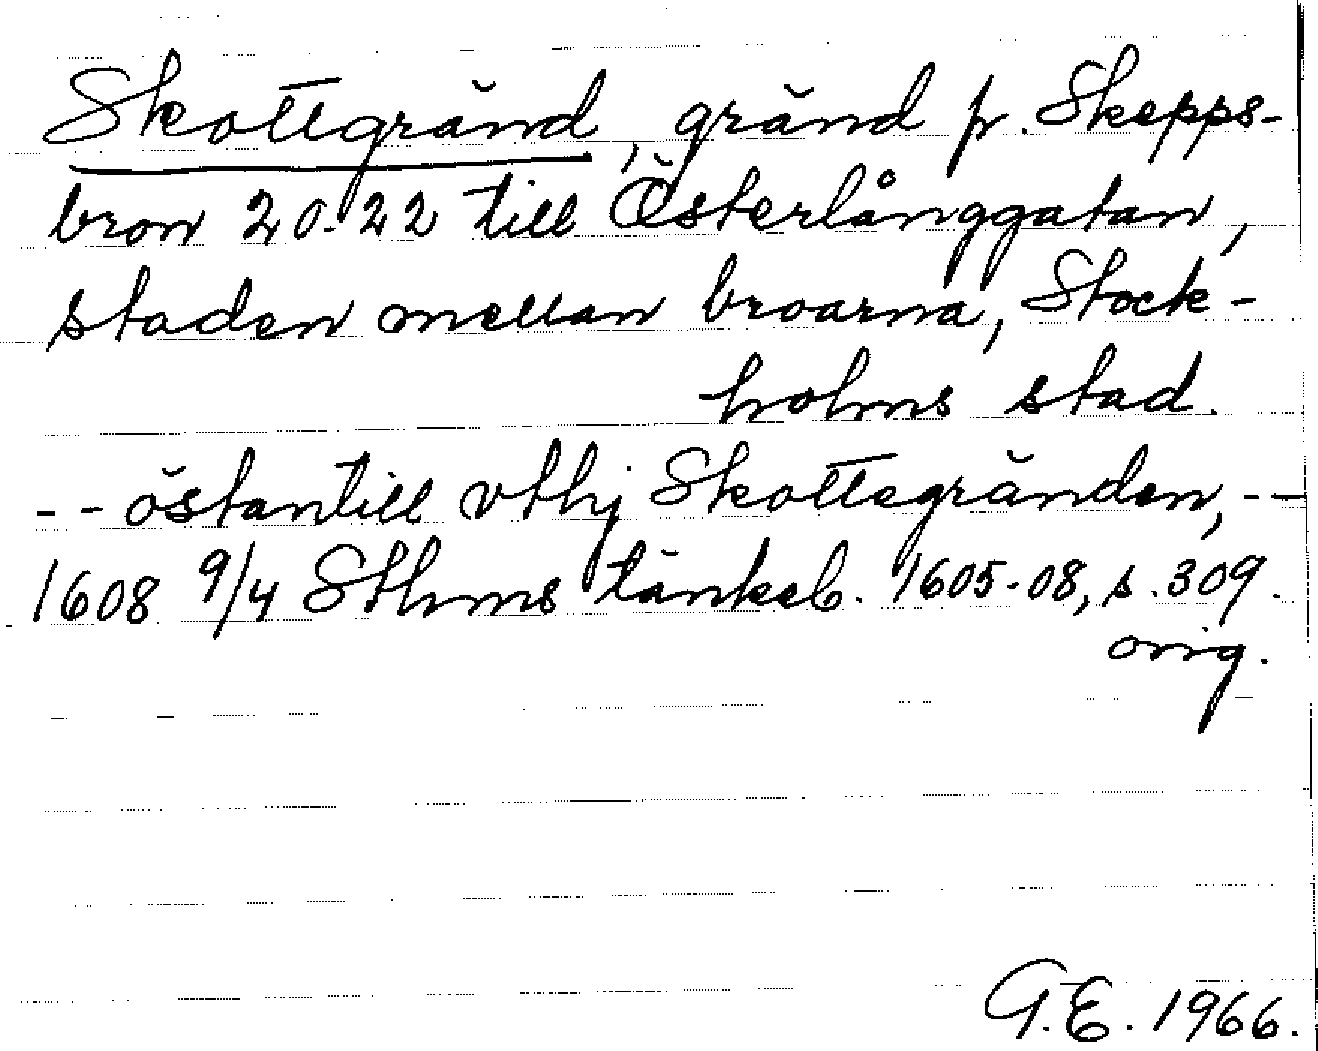 Skottgränd, gränd fr. Skepps-
bron 20-22 till Österlånggatan,
staden mellan broarna, Stock-
holms stad.
-- östantill vthj Skottegränden, --
1608 9/4 Sthms tänkeb. 1605-08, s. 309.
orig.
G.E. 1966.